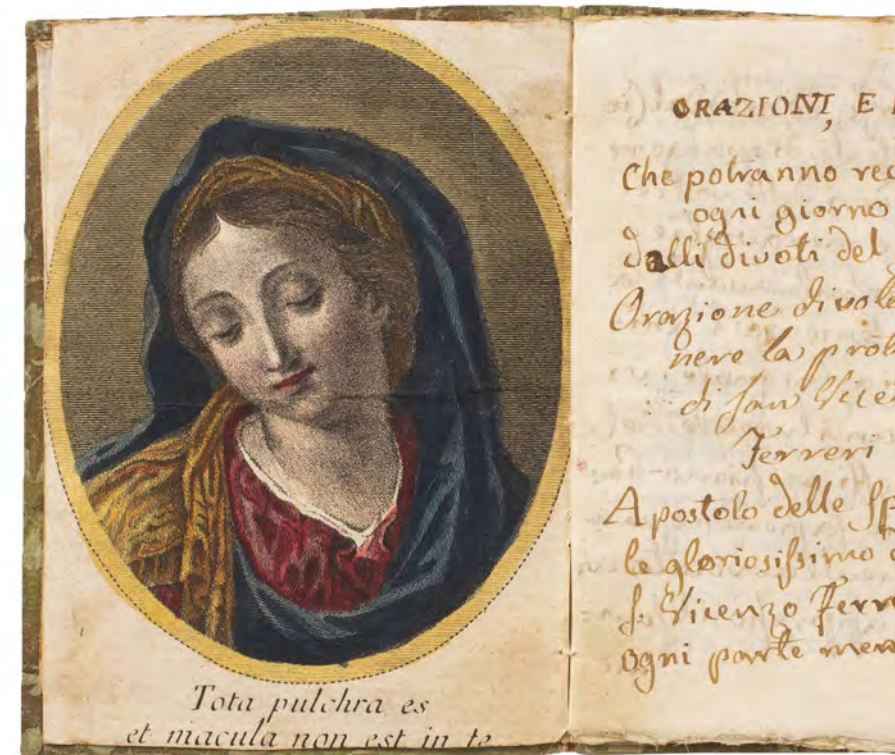 Tota pulchra es
et macula non est in te
ORAZIONI, E
Che potranno rec
ogni giorno
dalli divoti del
Orazione divol
nere la prote
di San Vicen
Ferreri
Apostolo delle Sp
le gloriosissimo
S. Vicenzo Ferr
ogni parte mera